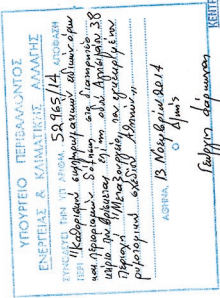 ΥΠΟΥΡΓΕΙΟ ΠΕΡΙΒΑΛΛΟΝΤΟΣ
ΕΝΕΡΓΕΙΑΣ & ΚΛΙΜΑΤΙΚΗΣ ΑΛΛΑΓΗΣ
ΣΥΝΟΔΕΥΕΙ ΤΗΝ ΥΠ' ΑΡΙΘΜ. 52965/14 ΑΠΟΦΑΣΗ
ΠΕΡΙ "Καθορισμός συμπληρωματικών ειδικών όρων
και περιορισμών δόμησης στο διατηρητέο
κτίριο που βρίσκεται επί της οδού 38
περιοχή "Μεταξουργείο" του εγκεκριμένου
ρυμοτομικού σχεδίου Αθηνών"
ΑΘΗΝΑ, 13 Νοεμβρίου 2014
Ο